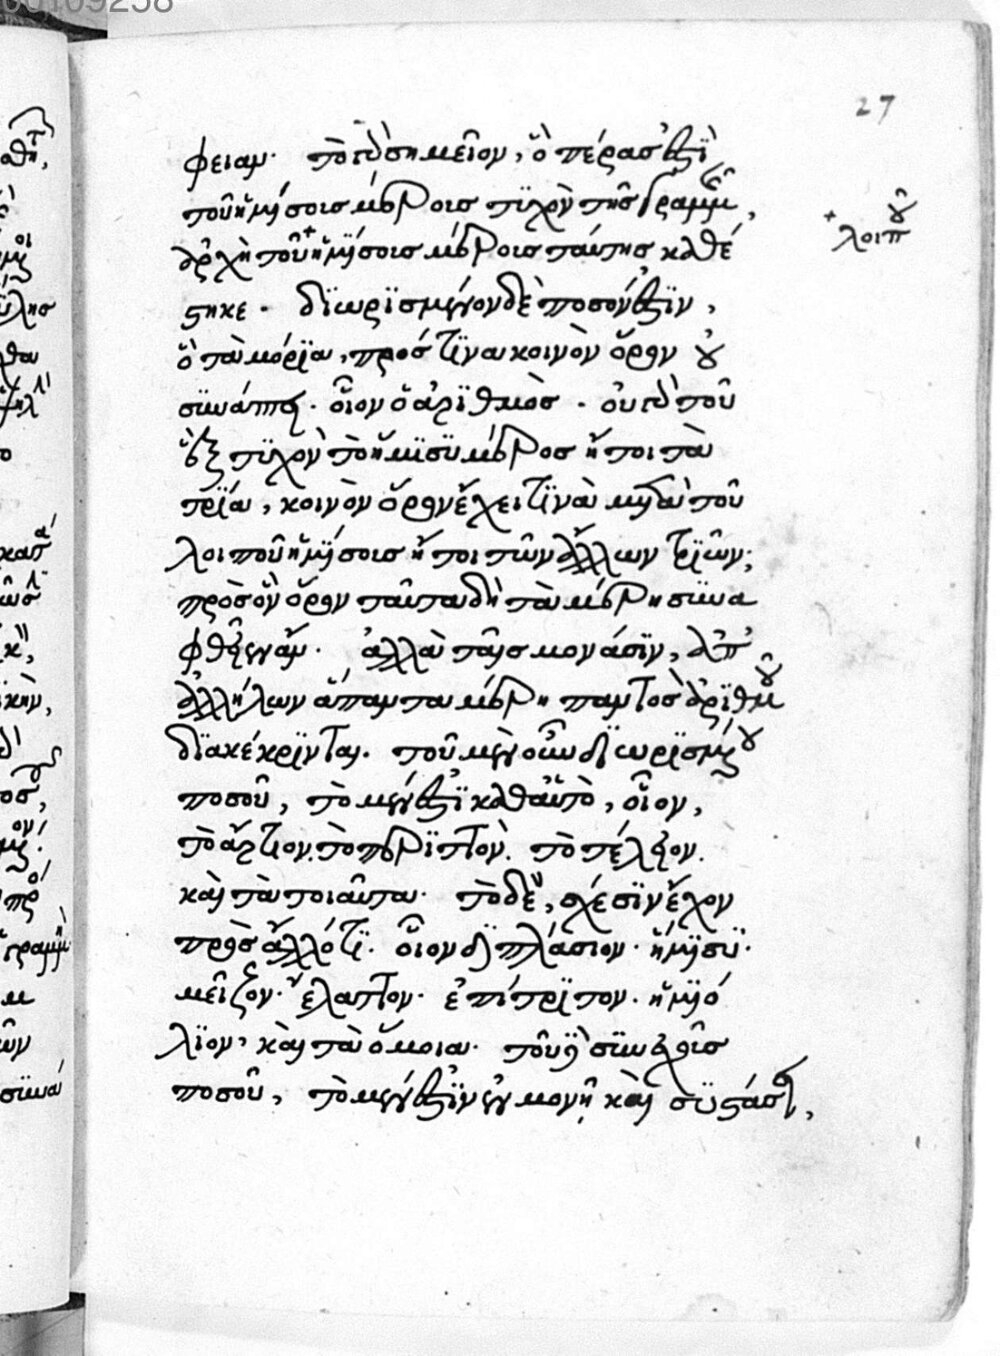 27
φειαν. τὸ τε σημεῖον, ὃ πέρας ἐστὶ
τοῦ ἡμίσοις μέροις τυχὸν τῆς γραμμῆς,
ἀρχὴ τοῦ + ἡμίσοις μέροις ταύτης καθέ
+ λοιποῦ
στηκε. διωρισμένον δὲ ποσόν ἐστιν,
ὃ τὰ μόρια, πρός τινα κοινὸν ὅρον οὐ
συνάπτει. οἷον ὁ ἀριθμὸς. οὔτε τοῦ
ἓξ τυχὸν τὸ ἥμισυ μέρος ἤτοι τὰ
τρία, κοινὸν ὅρον ἔχει τινὰ μετὰ τοῦ
λοιποῦ ἡμίσοις ἤτοι τῶν ἄλλων τριῶν,
πρὸς ὃν ὅρον ταῦτα δὴ τὰ μέρη συνα
φθεῖεν ἄν. ἀλλὰ ταῖς μονάσιν, ἀπ'
ἀλλήλων ἅπαντα μέρη παντὸς ἀριθμοῦ
διακέκρινται. τοῦ μὲν οὖν διωρισμένου
ποσοῦ, τὸ μέν ἐστι καθαὑτὸ, οἷον,
τὸ ἄρτιον. τὸ περιττὸν. τὸ τέλειον.
καὶ τὰ τοιαῦτα. τὸ δὲ, σχέσιν ἔχον
πρὸς ἄλλό τι. οἷον διπλάσιον. ἥμισυ.
μεῖζον. ἔλαττον. ἐπίτριτον. ἡμιό
λιον, καὶ τὰ ὅμοια. τοῦ δὲ συνεχοῖς
ποσοῦ, τὸ μέν ἐστιν ἐν μονῇ καὶ στάσει,